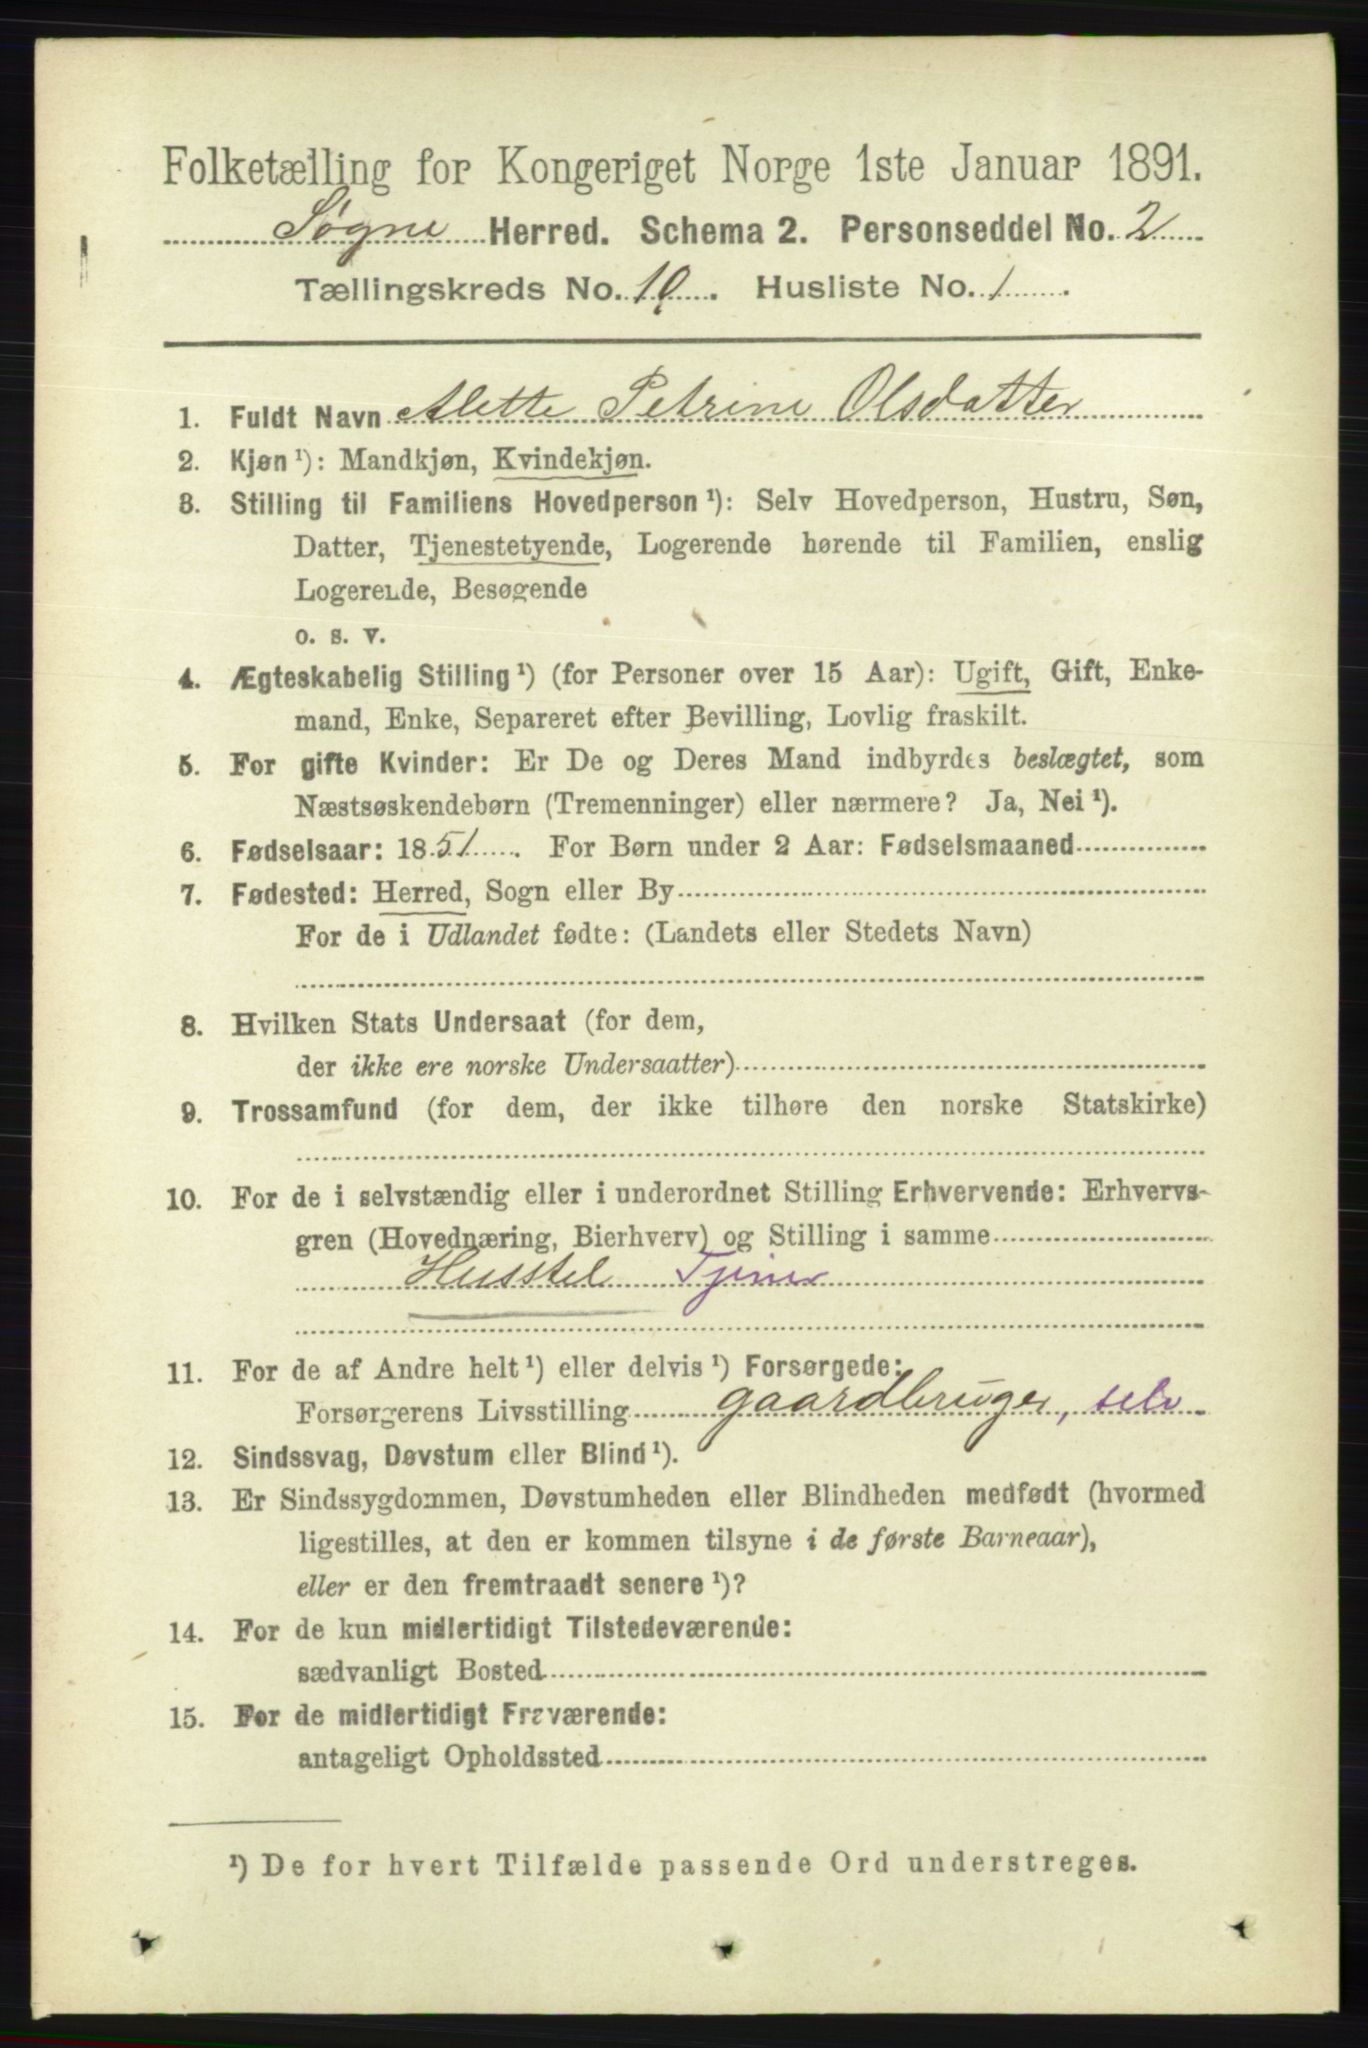 Folketælling for Kongeriget Norge 1ste Januar 1891.
Søgne Herred. Schema 2. Personseddel No. 2
Tællingskreds No. 10. Husliste No. 1.
1. Fuldt Navn Alette Petrine Olsdatter
2. Kjøn ¹): Mandkjøn, Kvindekjøn.
3. Stilling til Familiens Hovedperson ¹): Selv Hovedperson, Hustru, Søn,
Datter, Tjenestetyende, Logerende hørende til Familien, enslig
Logerende, Besøgende
o. s. v.
4. Ægteskabelig Stilling ¹) (for Personer over 15 Aar): Ugift, Gift, Enke-
mand, Enke, Separeret efter Bevilling, Lovlig fraskilt.
5. For gifte Kvinder: Er De og Deres Mand indbyrdes beslægtet, som
Næstsøskendebørn (Tremenninger) eller nærmere? Ja, Nei ¹).
6. Fødselsaar: 1851. For Børn under 2 Aar: Fødselsmaaned
7. Fødested: Herred, Sogn eller By
For de i Udlandet fødte: (Landets eller Stedets Navn)
8. Hvilken Stats Undersaat (for dem,
der ikke ere norske Undersaatter)
9. Trossamfund (for dem, der ikke tilhøre den norske Statskirke)
10. For de i selvstændig eller i underordnet Stilling Erhvervende: Erhvervs-
gren (Hovednæring, Bierhverv) og Stilling i samme
Husstel Tjener
11. For de af Andre helt ¹) eller delvis ¹) Forsørgede:
Forsørgerens Livsstilling gaardbruger, selv
12. Sindssvag, Døvstum eller Blind ¹).
13. Er Sindssygdommen, Døvstumheden eller Blindheden medfødt (hvormed
ligestilles, at den er kommen tilsyne i de første Barneaar),
eller er den fremtraadt senere ¹)?
14. For de kun midlertidigt Tilstedeværende:
sædvanligt Bosted
15. For de midlertidigt Fraværende:
antageligt Opholdssted
¹) De for hvert Tilfælde passende Ord understreges.